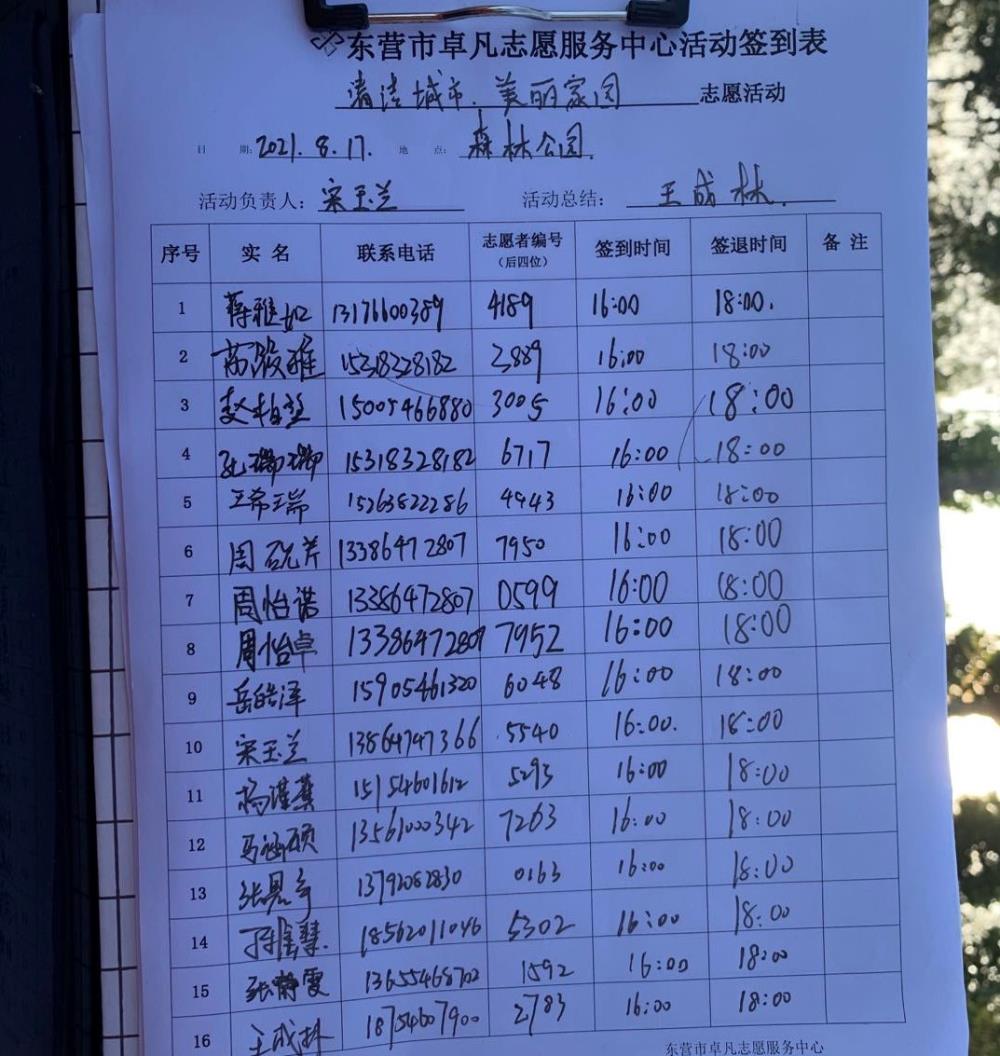 东营市卓凡志愿服务中心活动签到表
清洁城市、美丽家园 志愿活动
日 期: 2021.8.17. 地 点: 森林公园.
活动负责人: 宋玉兰 活动总结: 王成林.
序号 实名 联系电话 志愿者编号(后四位) 签到时间 签退时间 备注
1 蒋雅如 13176600389 4189 16:00 18:00.
2 15318328182 2889 16:00 18:00
3 赵柏 15005466880 3005 16:00 18:00
4 15318328182 6717 16:00 18:00
5 15263822286 4943 16:00 18:00
6 周 13386472807 7950 16:00 18:00
7 周怡诺 13386472807 0599 16:00 18:00
8 周怡卓 13386472807 7952 16:00 18:00
9 岳皓泽 15905461320 6048 16:00 18:00
10 宋玉兰 13864747366 5540 16:00. 18:00
11 杨 15154601612 5293 16:00 18:00
12 马涵硕 13561000342 7263 16:00 18:00
13 张 13792082830 0163 16:00 18:00
14 18562011046 5302 16:00 18:00
15 张静雯 13655468702 1592 16:00 18:00
16 王成林 18754607900 2783 16:00 18:00
东营市卓凡志愿服务中心